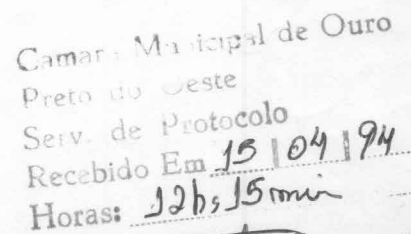 Camara Municipal de Ouro
Preto do Oeste
Serv. de Protocolo
Recebido Em 15 | 04 | 94
Horas: 12hs 15 min